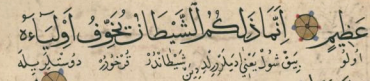 عَظِيمٍ إِنَّمَا ذَٰلِكُمُ ٱلشَّيْطَانُ يُخَوِّفُ أَوْلِيَاءَهُ
اولو بيق شول يعنى شيطاندر قورقودر دوستلرىله